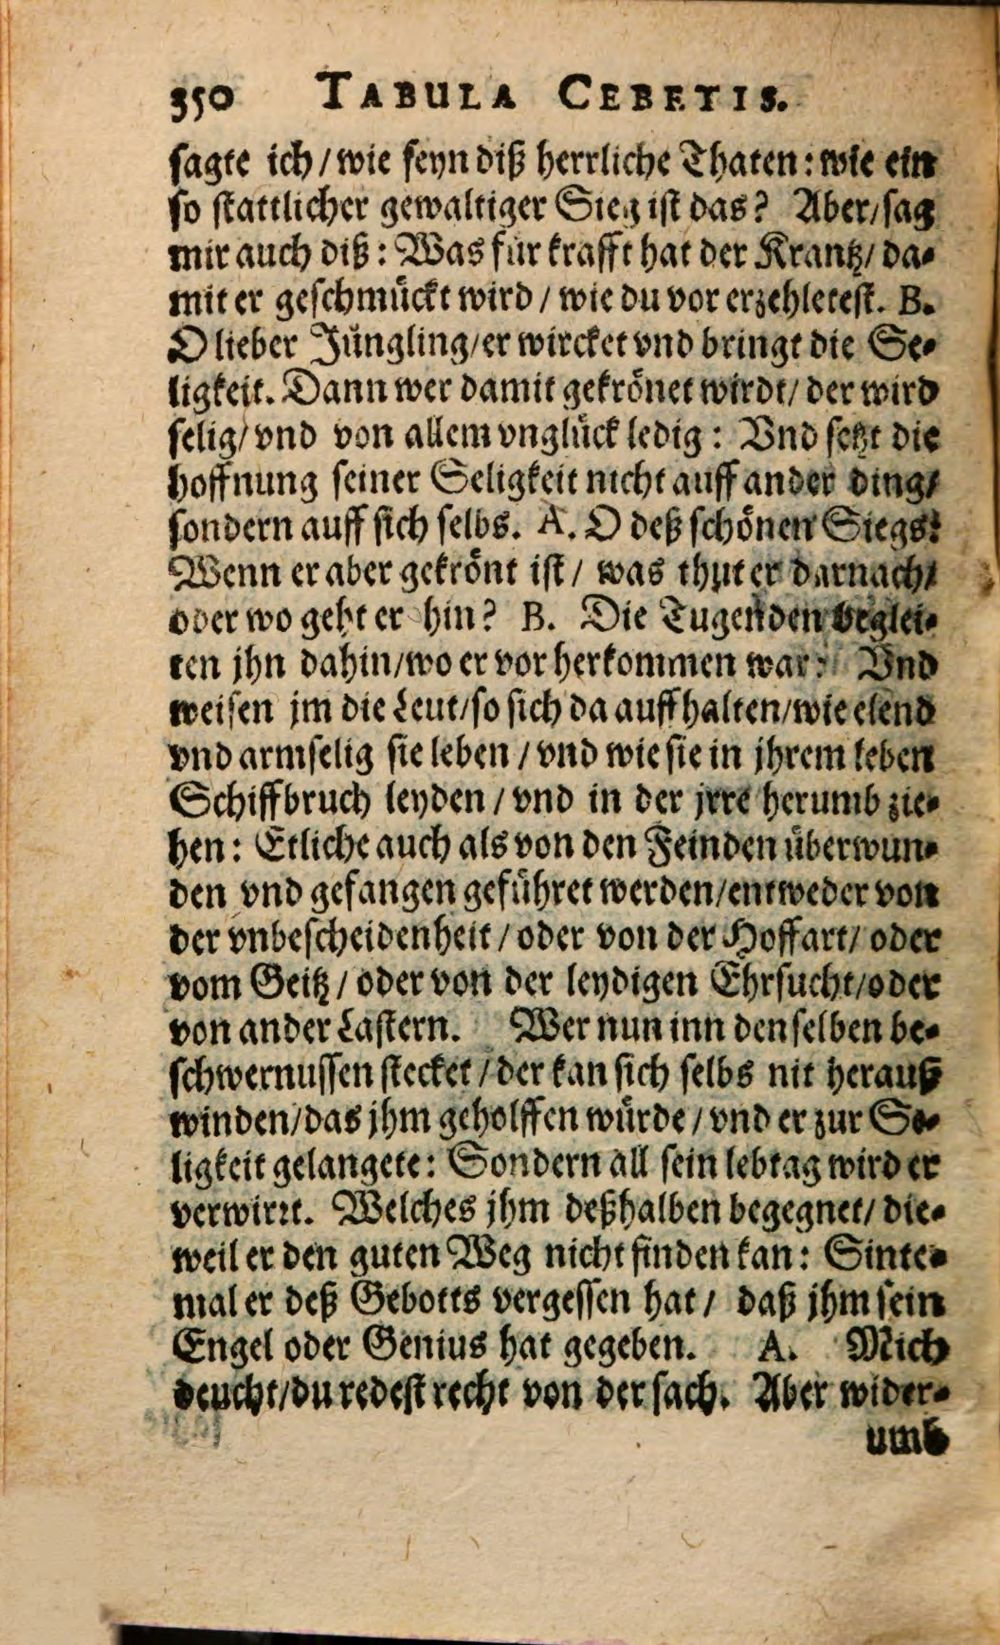 350 TABULA CEBETIS.
sagte ich / wie seyn diß herrliche Thaten: wie ein
so stattlicher gewaltiger Sieg ist das? Aber / sag
mir auch diß: Was für krafft hat der Krantz / da-
mit er geschmückt wird / wie du vor erzehletest. B.
O lieber Jüngling / er wircket vnd bringt die Se-
ligkeit. Dann wer damit gekrönet wirdt / der wird
selig / vnd von allem vnglück ledig: Vnd setzt die
hoffnung seiner Seligkeit nicht auff ander ding /
sondern auff sich selbs. A. O deß schönen Siegs!
Wenn er aber gekrönt ist / was thut er darnach /
oder wo geht er hin? B. Die Tugenden beglei-
ten jhn dahin / wo er vor herkommen war: Vnd
weisen jm die Leut / so sich da auffhalten / wie elend
vnd armselig sie leben / vnd wie sie in jhrem leben
Schiffbruch leyden / vnd in der jrre herumb zie-
hen: Etliche auch als von den Feinden überwun-
den vnd gefangen geführet werden / entweder von
der vnbescheidenheit / oder von der Hoffart / oder
vom Geitz / oder von der leydigen Ehrsucht / oder
von ander Lastern. Wer nun inn denselben be-
schwernussen stecket / der kan sich selbs nit herauß
winden / das jhm geholffen würde / vnd er zur Se-
ligkeit gelangete: Sondern all sein lebtag wird er
verwirrt. Welches jhm deßhalben begegnet / die-
weil er den guten Weg nicht finden kan: Sinte-
mal er deß Gebotts vergessen hat / daß jhm sein
Engel oder Genius hat gegeben. A. Mich
deucht / du redest recht von der sach. Aber wider-
umb